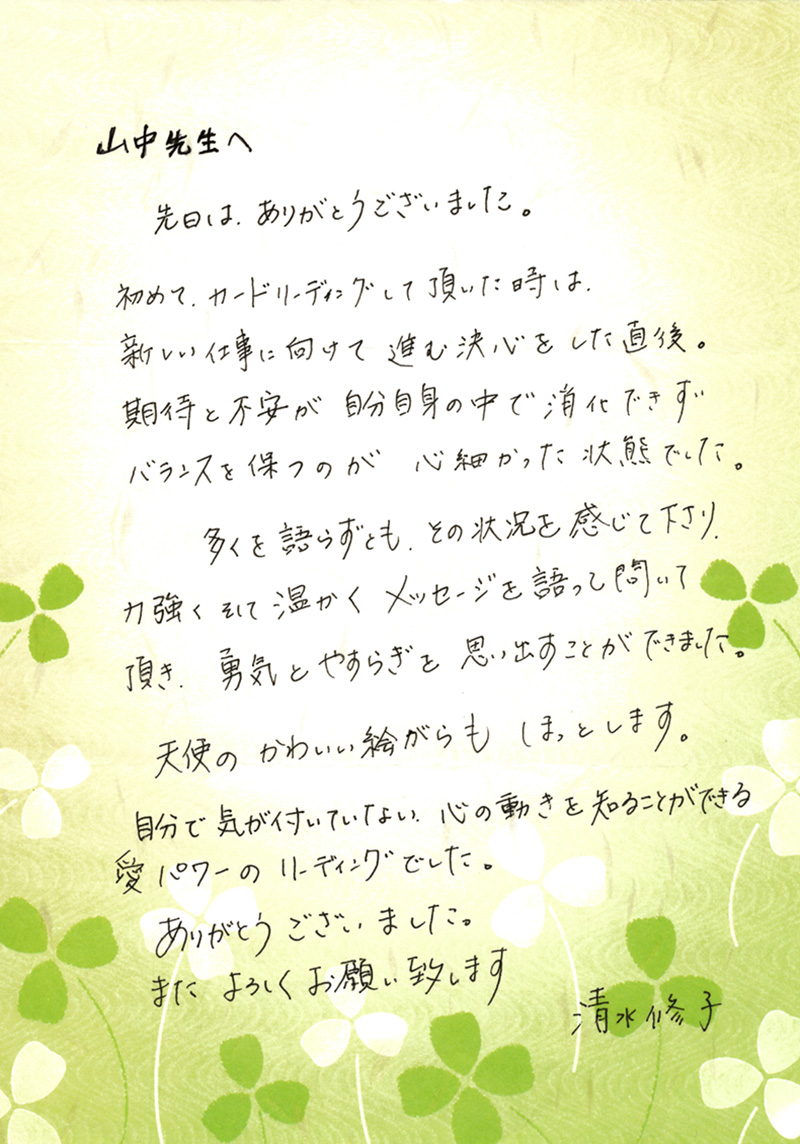 山中先生へ
先日は、ありがとうございました。
初めて、カードリーディングして頂いた時は、
新しい仕事に向けて進む決心をした直後。
期待と不安が自分自身の中で消化できず
バランスを保つのが心細かった状態でした。
多くを語らずとも、その状況を感じて下さり、
力強くそして温かくメッセージを語って聞いて
頂き、勇気とやすらぎを思い出すことができました。
天使のかわいい絵がらもほっとします。
自分で気が付いていない、心の動きを知ることができる
愛パワーのリーディングでした。
ありがとうございました。
またよろしくお願い致します
清水修子